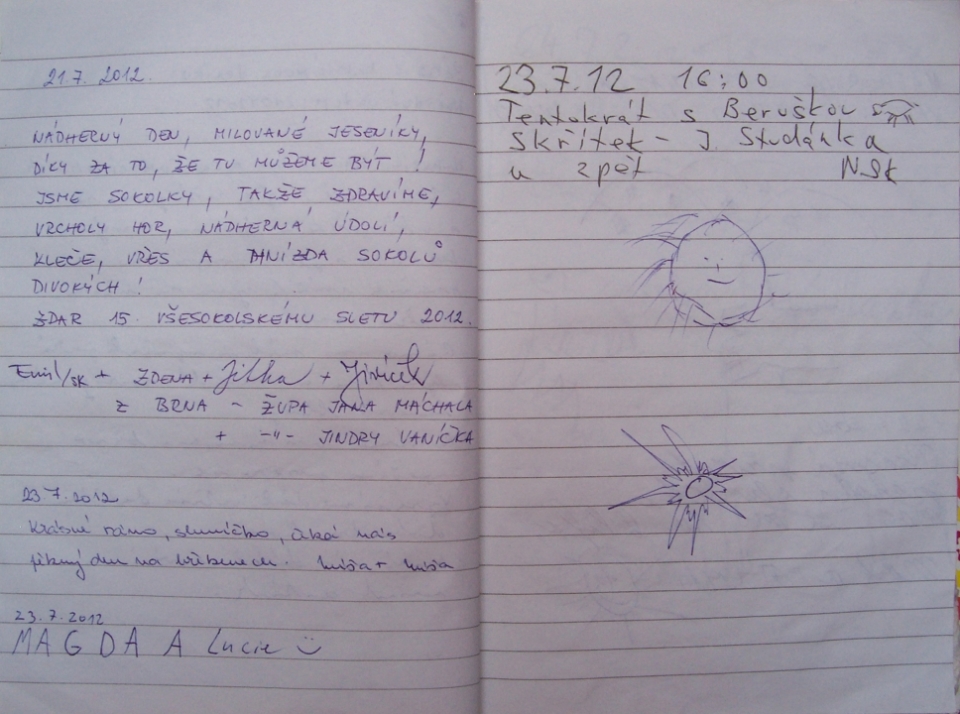 21.7. 2012.
NÁDHERNÝ DEN, MILOVANÉ JESENÍKY,
DÍKY ZA TO, ŽE TU MŮŽEME BÝT !
JSME SOKOLKY, TAKŽE ZDRAVÍME,
VRCHOLY HOR, NÁDHERNÁ ÚDOLÍ,
KLEČE, VŘES A HNÍZDA SOKOLŮ
DIVOKÝCH !
ZDAR 15. VŠESOKOLSKÉMU SLETU 2012.
+ ZDENA + Jitka + Jiříček
Z BRNA - ŽUPA JANA MÁCHALA
+ -"- JINDRY VANÍČKA
23.7.2012
Krásné ráno, sluníčko, čeká nás
pěkný den na hřebenech. Míša + Míša
23.7.2012
MAGDA A Lucie
23.7.12 16:00
Tentokrát s Beruškou
Skřítek - J. Studánka
a zpět